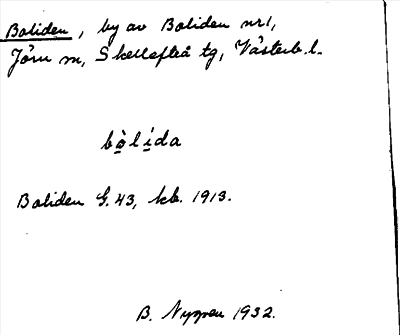 Boliden, by av Boliden nr 1,
Jörn sn, Skellefteå tg, Västerb. l.
bò̲lí̲da
Boliden G. 43, kb. 1913.
B. Nygren 1932.